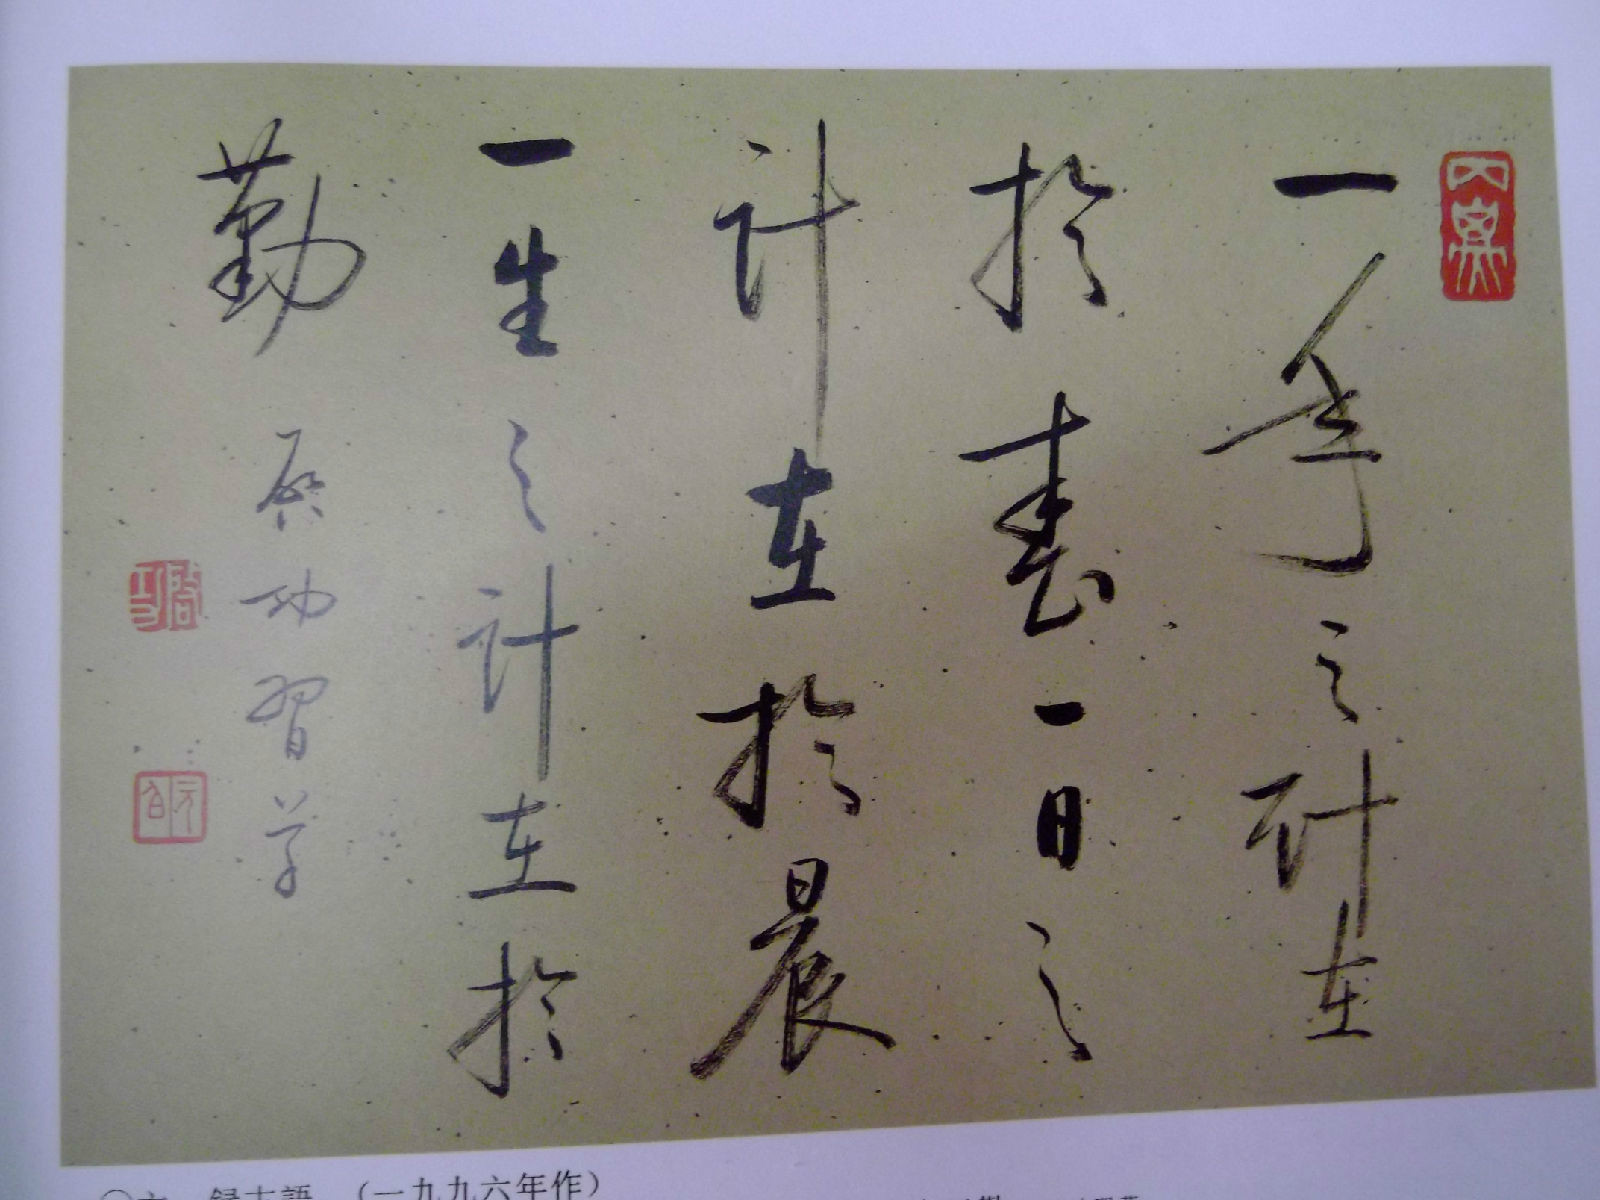 一年之计在
於春一日之
计在於晨
一生之计在於
勤
启功習学
启功
元白
錄古語 （一九九六年作）